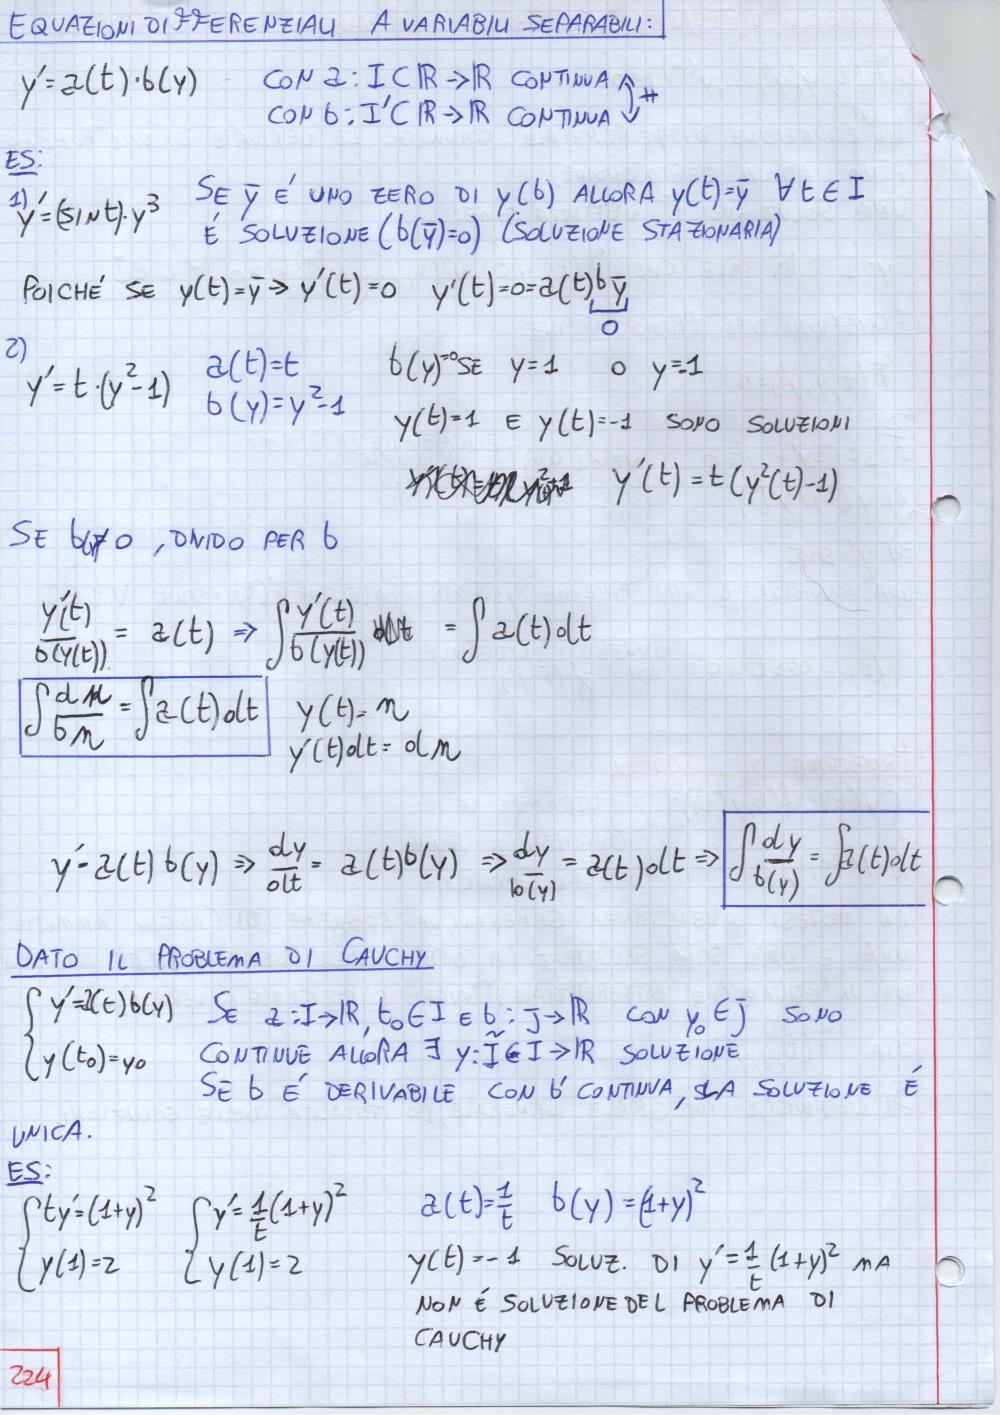 EQUAZIONI DIFFERENZIALI A VARIABILI SEPARABILI:
y'=a(t)·b(y) CON a: I⊂ℝ→ℝ CONTINUA
CON b: I'⊂ℝ→ℝ CONTINUA
ES:
1) y'=(sint)·y³ SE ȳ É UNO ZERO DI y(b) ALLORA y(t)=ȳ ∀t∈I
É SOLUZIONE (b(ȳ)=0) (SOLUZIONE STAZIONARIA)
POICHÉ SE y(t)=ȳ → y'(t)=0 y'(t)=0=a(t)bȳ
0
2) y'=t·(y²-1) a(t)=t b(y)=0 SE y=1 O y=-1
b(y)=y²-1
y(t)=1 E y(t)=-1 SONO SOLUZIONI
y'(t)=t(y²(t)-1)
SE b(y)≠0, DIVIDO PER b
y'(t)/b(y(t)) = a(t) ⇒ ∫ y'(t)/b(y(t)) dt = ∫ a(t)dt
∫ du/bu = ∫ a(t)dt y(t)=u
y'(t)dt=du
y'=a(t)b(y) ⇒ dy/dt = a(t)b(y) ⇒ dy/b(y) = a(t)dt ⇒ ∫ dy/b(y) = ∫ a(t)dt
DATO IL PROBLEMA DI CAUCHY
{ y'=a(t)b(y) SE a: I→ℝ, t₀∈I E b: J→ℝ CON y₀∈J SONO
{ y(t₀)=y₀ CONTINUE ALLORA ∃ y: Ĩ⊂I→ℝ SOLUZIONE
SE b É DERIVABILE CON b' CONTINUA, LA SOLUZIONE É
UNICA.
ES:
{ ty'=(1+y)² { y'=1/t(1+y)² a(t)=1/t b(y)=(1+y)²
{ y(1)=2 { y(1)=2 y(t)=-1 SOLUZ. DI y'=1/t (1+y)² MA
NON É SOLUZIONE DEL PROBLEMA DI
CAUCHY
224